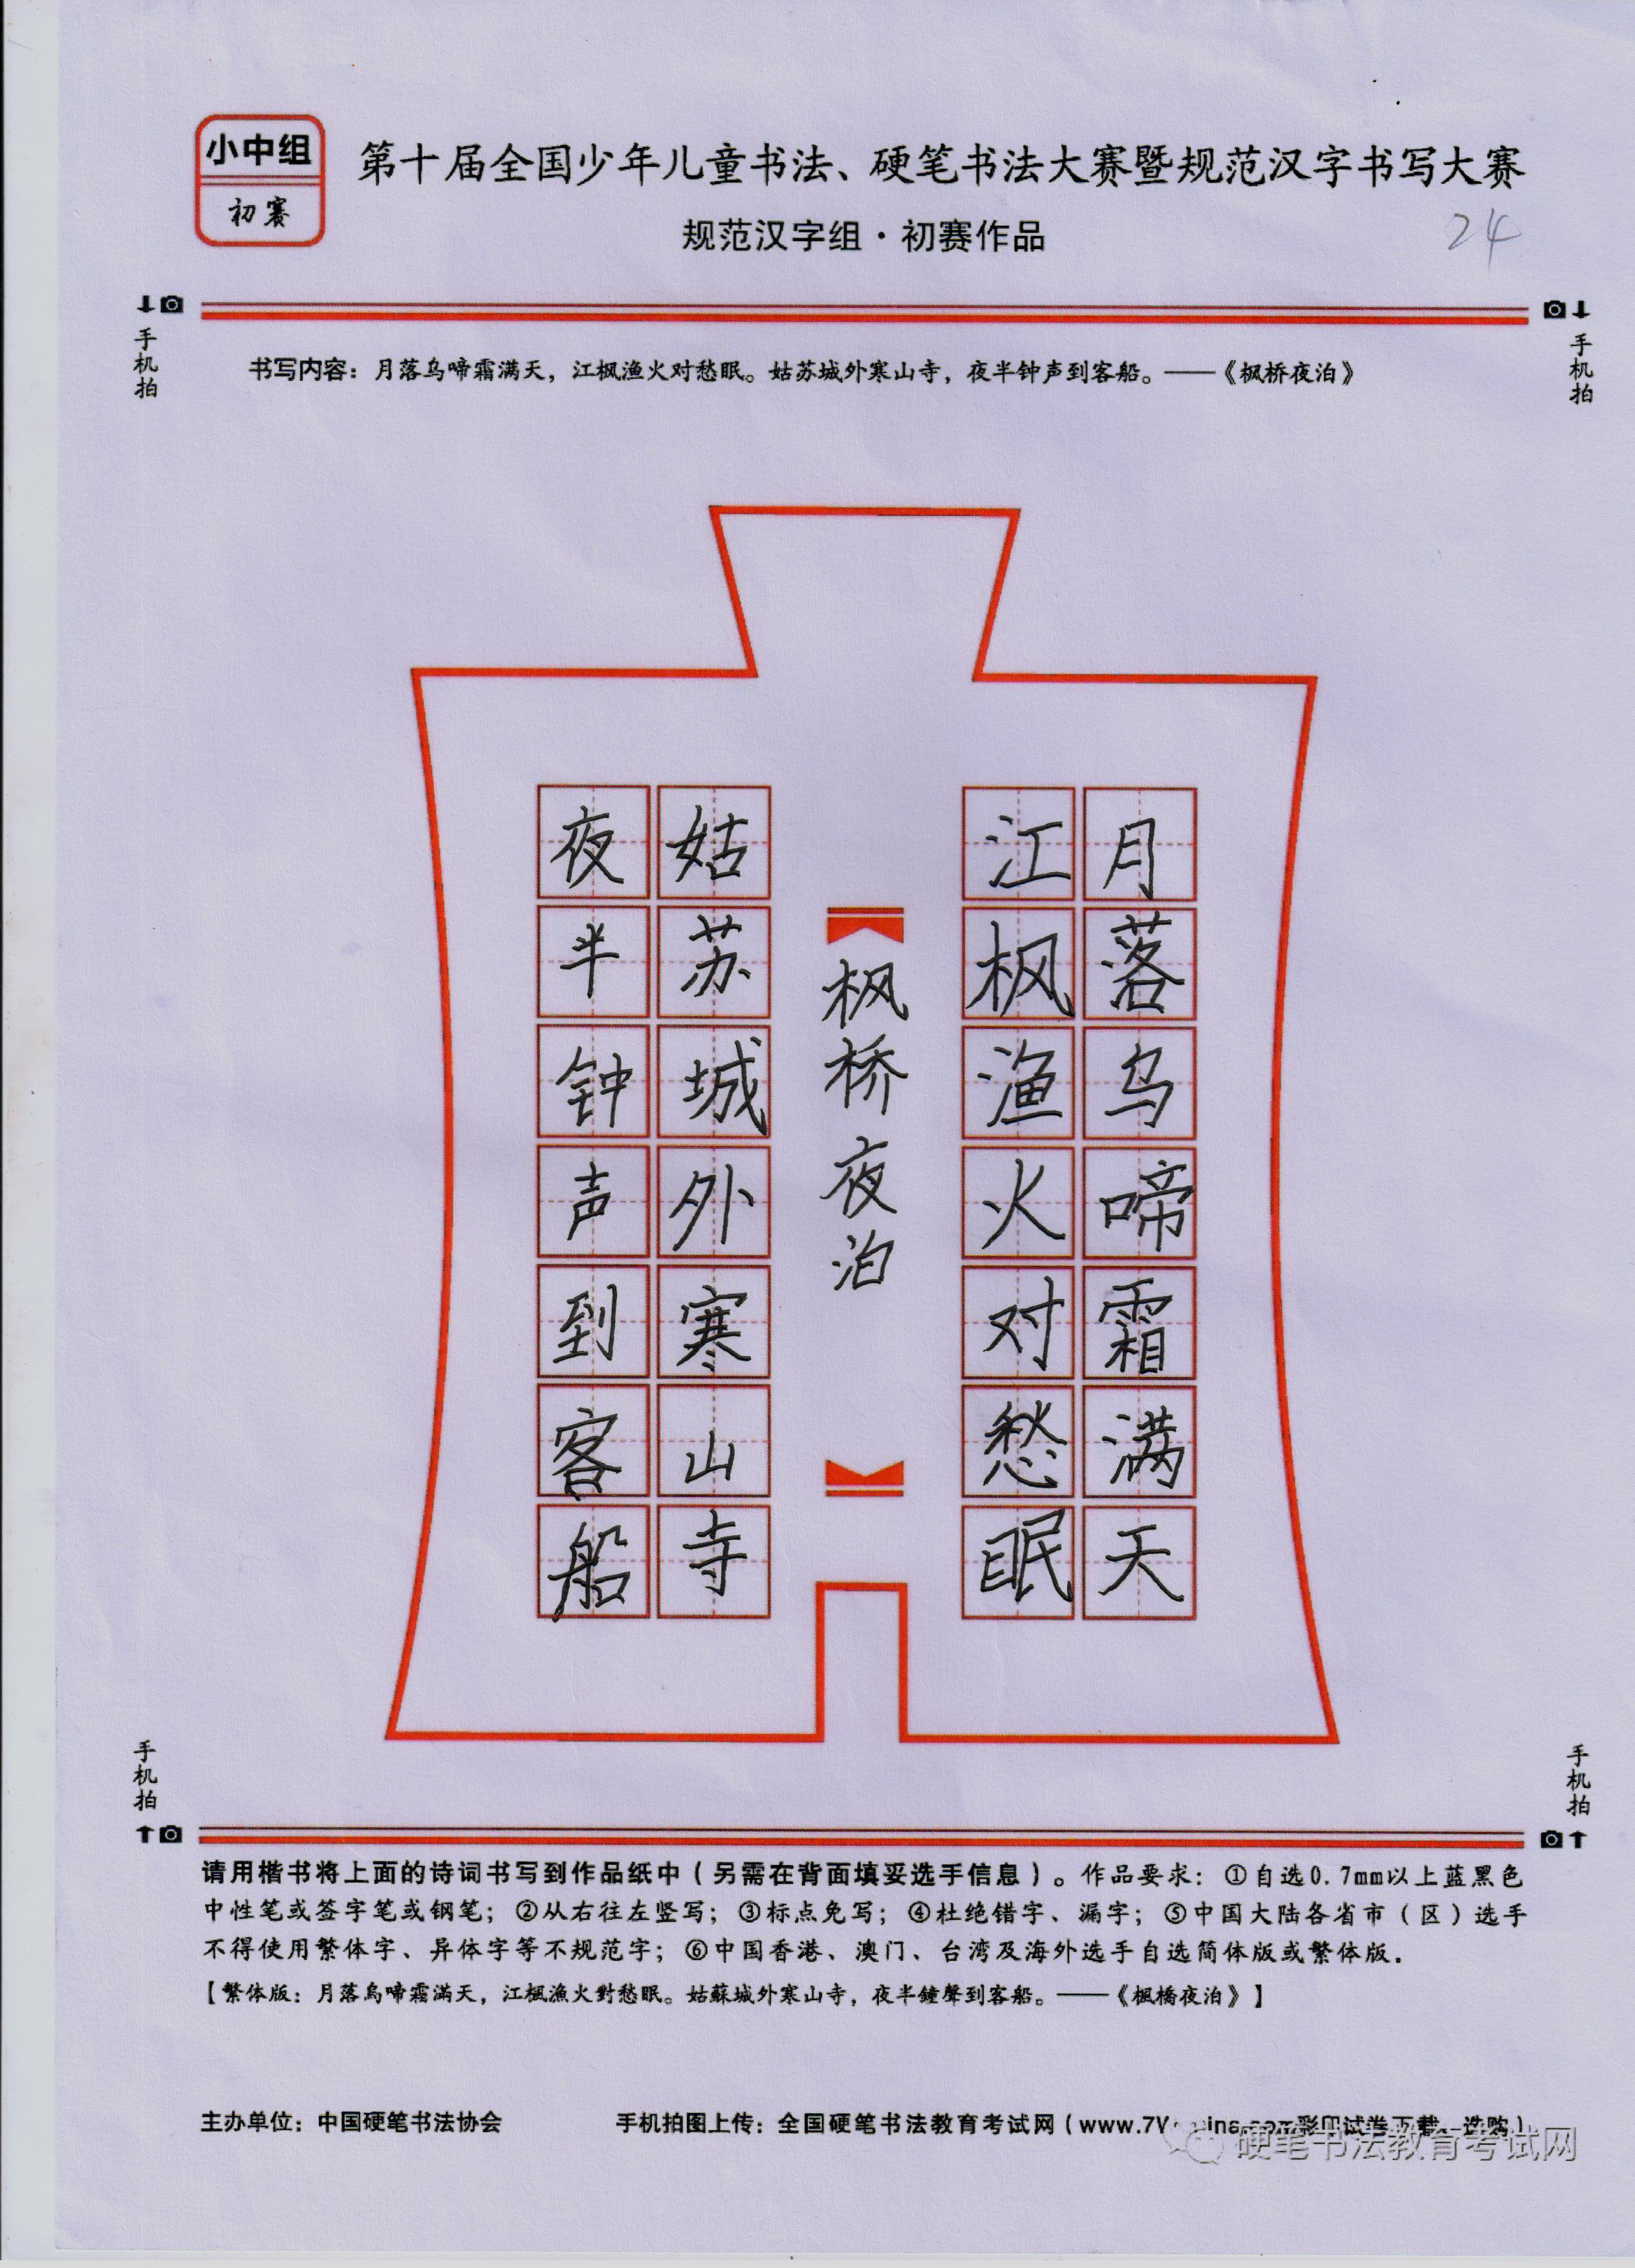 小中组
初赛
第十届全国少年儿童书法、硬笔书法大赛暨规范汉字书写大赛
规范汉字组·初赛作品
24
手机拍
手机拍
书写内容：月落乌啼霜满天，江枫渔火对愁眠。姑苏城外寒山寺，夜半钟声到客船。——《枫桥夜泊》
月落乌啼霜满天
江枫渔火对愁眠
枫桥夜泊
姑苏城外寒山寺
夜半钟声到客船
手机拍
手机拍
请用楷书将上面的诗词书写到作品纸中（另需在背面填妥选手信息）。作品要求：①自选0.7mm以上蓝黑色
中性笔或签字笔或钢笔；②从右往左竖写；③标点免写；④杜绝错字、漏字；⑤中国大陆各省市（区）选手
不得使用繁体字、异体字等不规范字；⑥中国香港、澳门、台湾及海外选手自选简体版或繁体版.
【繁体版：月落烏啼霜滿天，江楓漁火對愁眠。姑蘇城外寒山寺，夜半鐘聲到客船。——《楓橋夜泊》】
主办单位：中国硬笔书法协会
手机拍图上传：全国硬笔书法教育考试网（www.7 彩印试卷下载、选购）
硬笔书法教育考试网